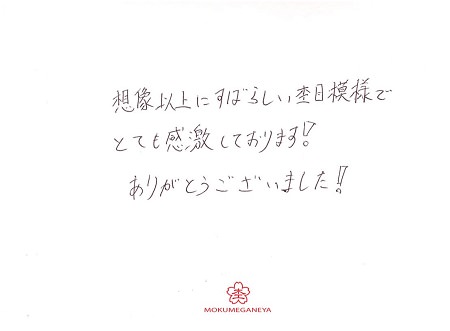 想像以上にすばらしい杢目模様で
とても感激しております!
ありがとうございました!!
杢
MOKUMEGANEYA